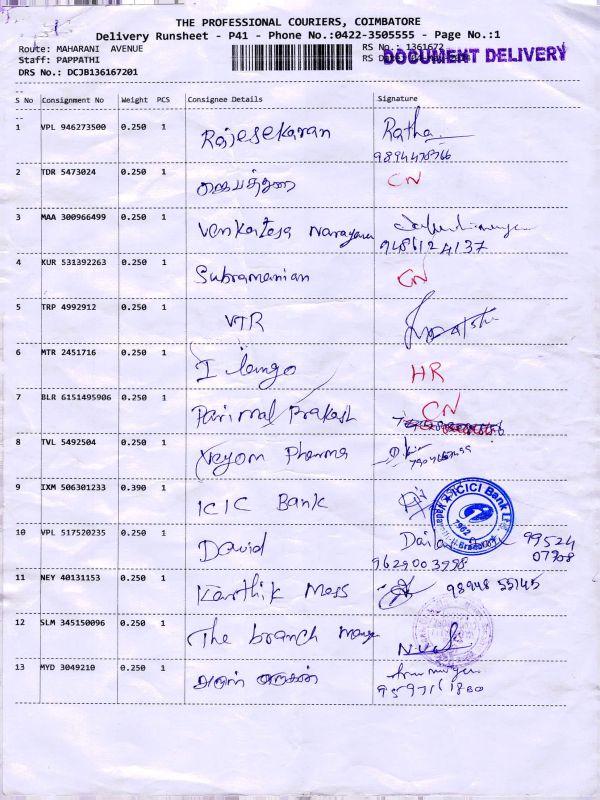 THE PROFESSIONAL COURIERS, COIMBATORE
Delivery Runsheet - P41 - Phone No.:0422-3505555 - Page No.:1
Route: MAHARANI AVENUE
RS No.: 1361672
Staff: PAPPATHI
RS Date:
DOCUMENT DELIVERY
DRS No.: DCJB136167201
S No Consignment No Weight PCS Consignee Details Signature
1 VPL 946273500 0.250 1 Rajesekaran Ratha
2 TDR 5473024 0.250 1 CN
3 MAA 300966499 0.250 1 Venkatesa Narayana
9486124137
4 KUR 531392263 0.250 1 Subramanian CN
5 TRP 4992912 0.250 1 VTR
6 MTR 2451716 0.250 1 Ilango HR
7 BLR 6151495906 0.250 1 Parimal Prakash CN
8 TVL 5492504 0.250 1 Pharma
9 IXM 506301233 0.390 1 ICIC Bank
ICICI Bank Ltd.
10 VPL 517520235 0.250 1 David 99524
07908
9629003998
11 NEY 40131153 0.250 1 Karthik Mess 98948 55145
12 SLM 345150096 0.250 1 The branch
13 MYD 3049210 0.250 1 அருள் முருகன்